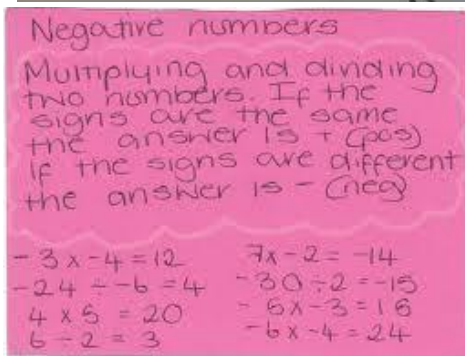 Negative numbers
Multiplying and dividing
two numbers. If the
signs are the same
the answer is + (pos)
If the signs are different
the answer is - (neg)
-3 x -4 = 12
-24 ÷ -6 = 4
4 x 5 = 20
6 ÷ 2 = 3
7 x -2 = -14
-30 ÷ 2 = -15
-5 x -3 = 15
-6 x -4 = 24